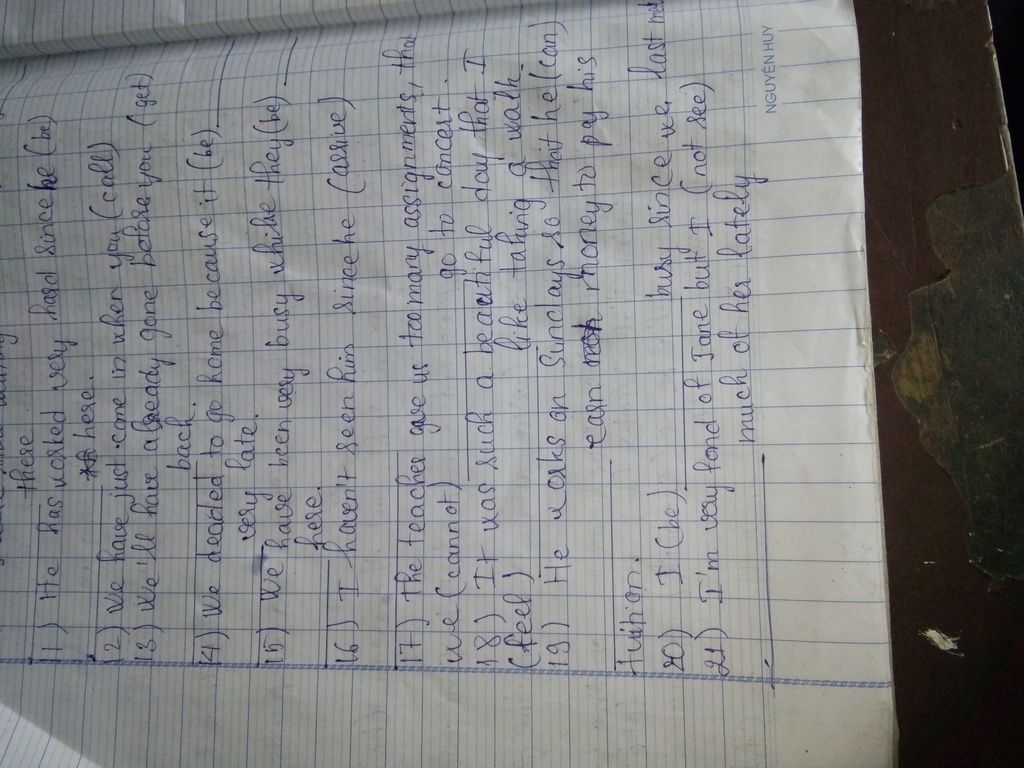 there
11) He has worked very hard since he (be)
here.
12) We have just come in when you (call)
13) We'll have already gone before you (get)
back.
14) We decided to go home because it (be)
very late.
15) We have been very busy while they (be)
here.
16) I haven't seen him since he (arrive)
17) The teacher gave us too many assignments, that
we (cannot) go to concert.
18) It was such a beautiful day that I
(feel) like taking a walk.
19) He works on Sundays so that he (can)
earn money to pay his
tuition.
20) I (be) busy since we last met
21) I'm very fond of Jane but I (not see)
much of her lately
NGUYÊN HUY